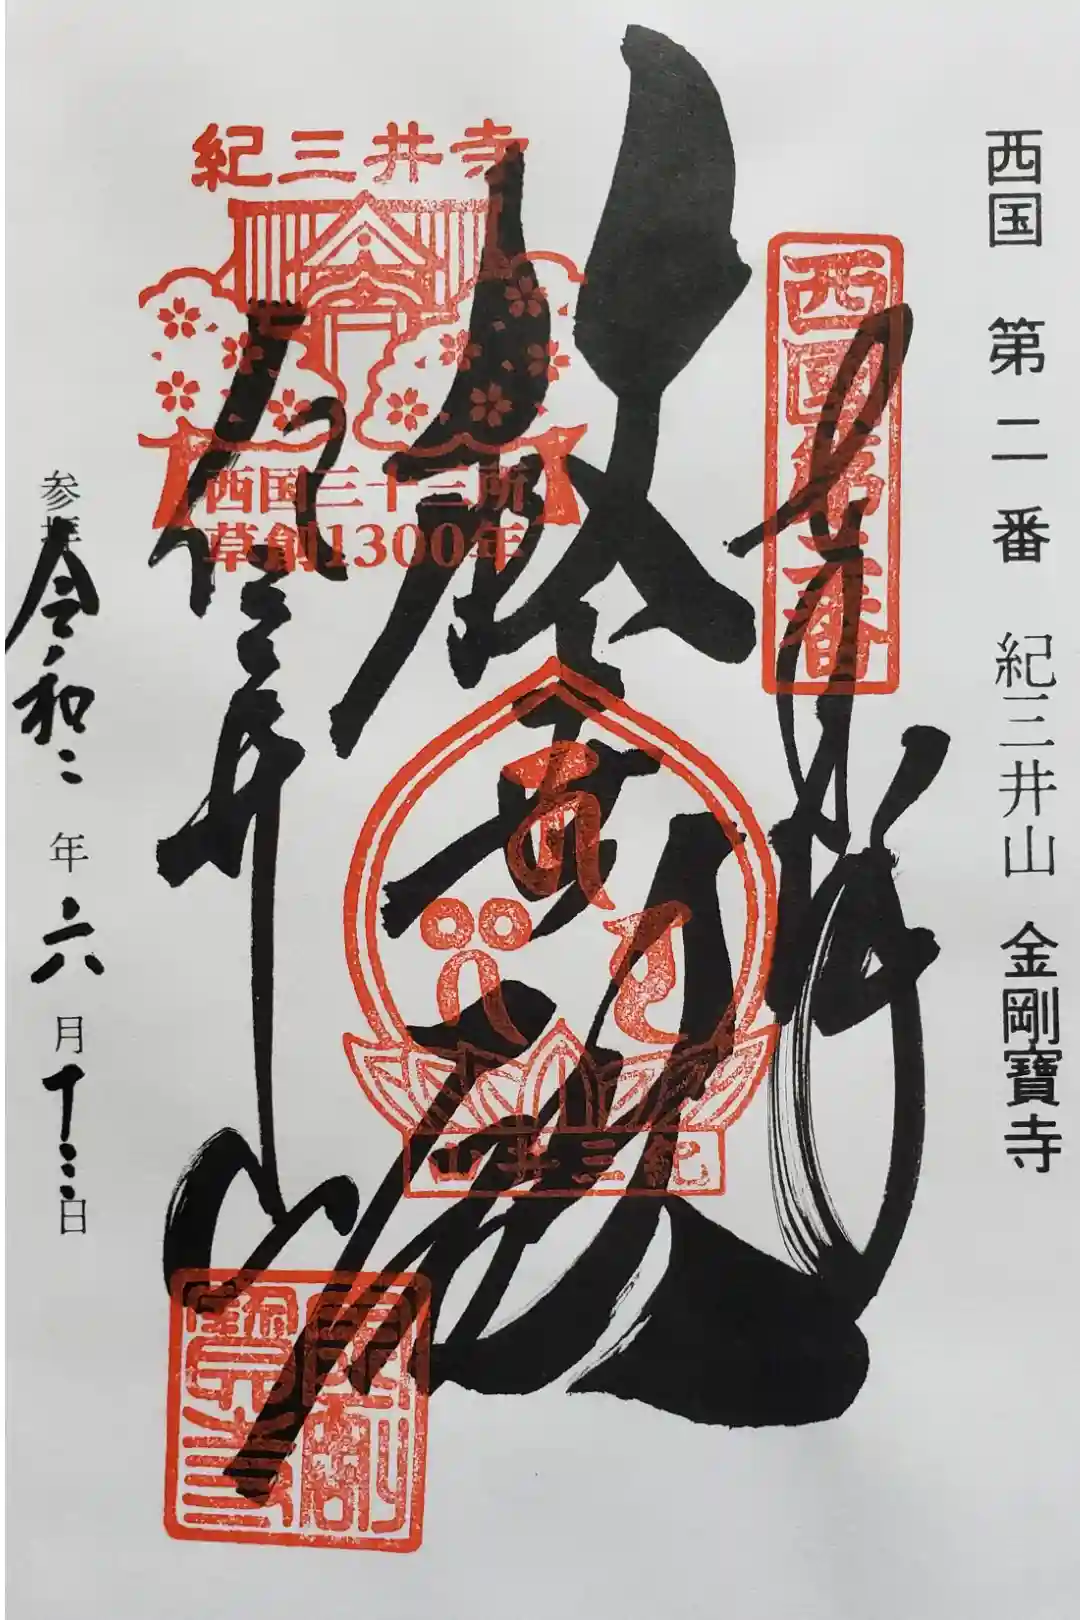 西国 第二番 紀三井山 金剛寶寺
西國第二番
奉拝
救世殿
紀三井寺
紀三井寺
西国三十三所
草創1300年
紀三井山
金剛寶寺
参拝 令和二年六月十三日